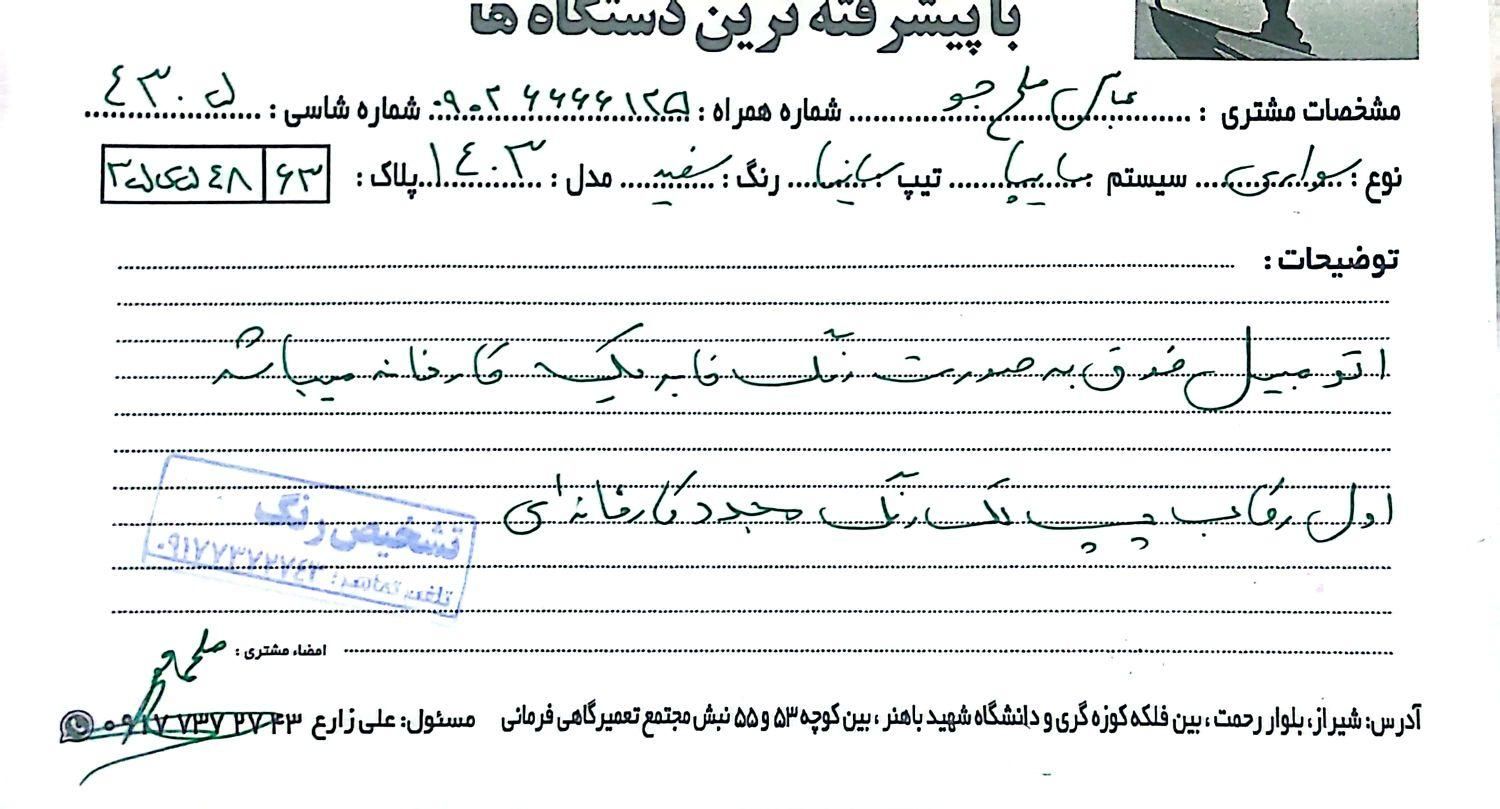 با پیشرفته ترین دستگاه ها
مشخصات مشتری : عباس صلح جو شماره همراه : ۰۹۰۲ ۶۶۶۶۱۲۵ شماره شاسی :
نوع : سواری سیستم سایپا تیپ ساینا رنگ : سفید مدل : ۱۴۰۳ پلاک : ۶۳
توضیحات :
اتومبیل فوق به صورت رنگ فابریک کارخانه میباشد
اول رکاب چپ لک رنگ مجدد کارخانه ای
تشخیص رنگ
تلفن تماس : ۰۹۱۷۷۳۷۲۷۴۳
امضاء مشتری :
آدرس: شیراز، بلوار رحمت ، بین فلکه کوزه گری و دانشگاه شهید باهنر ، بین کوچه ۵۳ و ۵۵ نبش مجتمع تعمیرگاهی فرمانی مسئول: علی زارع ۰۹۱۷ ۷۳۷ ۲۷ ۴۳